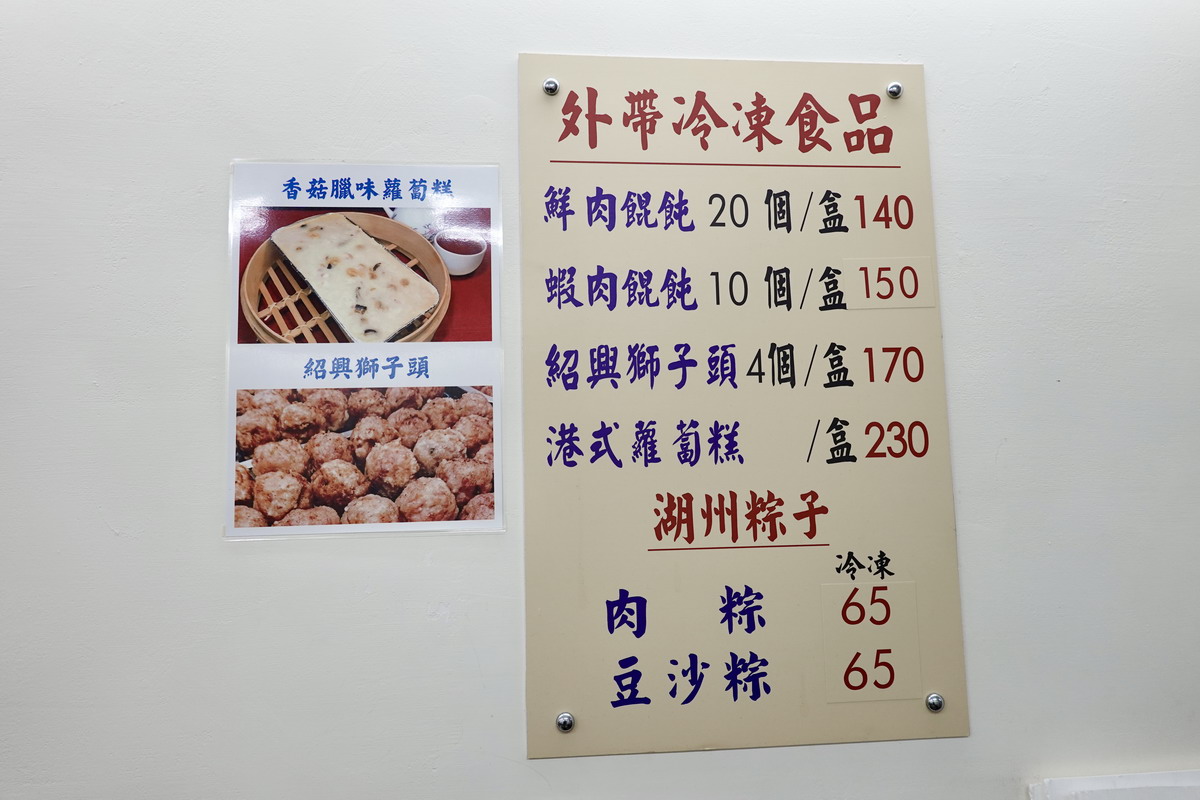 香菇臘味蘿蔔糕
紹興獅子頭
外帶冷凍食品
鮮肉餛飩 20 個/盒 140
蝦肉餛飩 10 個/盒 150
紹興獅子頭 4個/盒 170
港式蘿蔔糕 /盒 230
湖州粽子
冷凍
肉 粽 65
豆沙粽 65